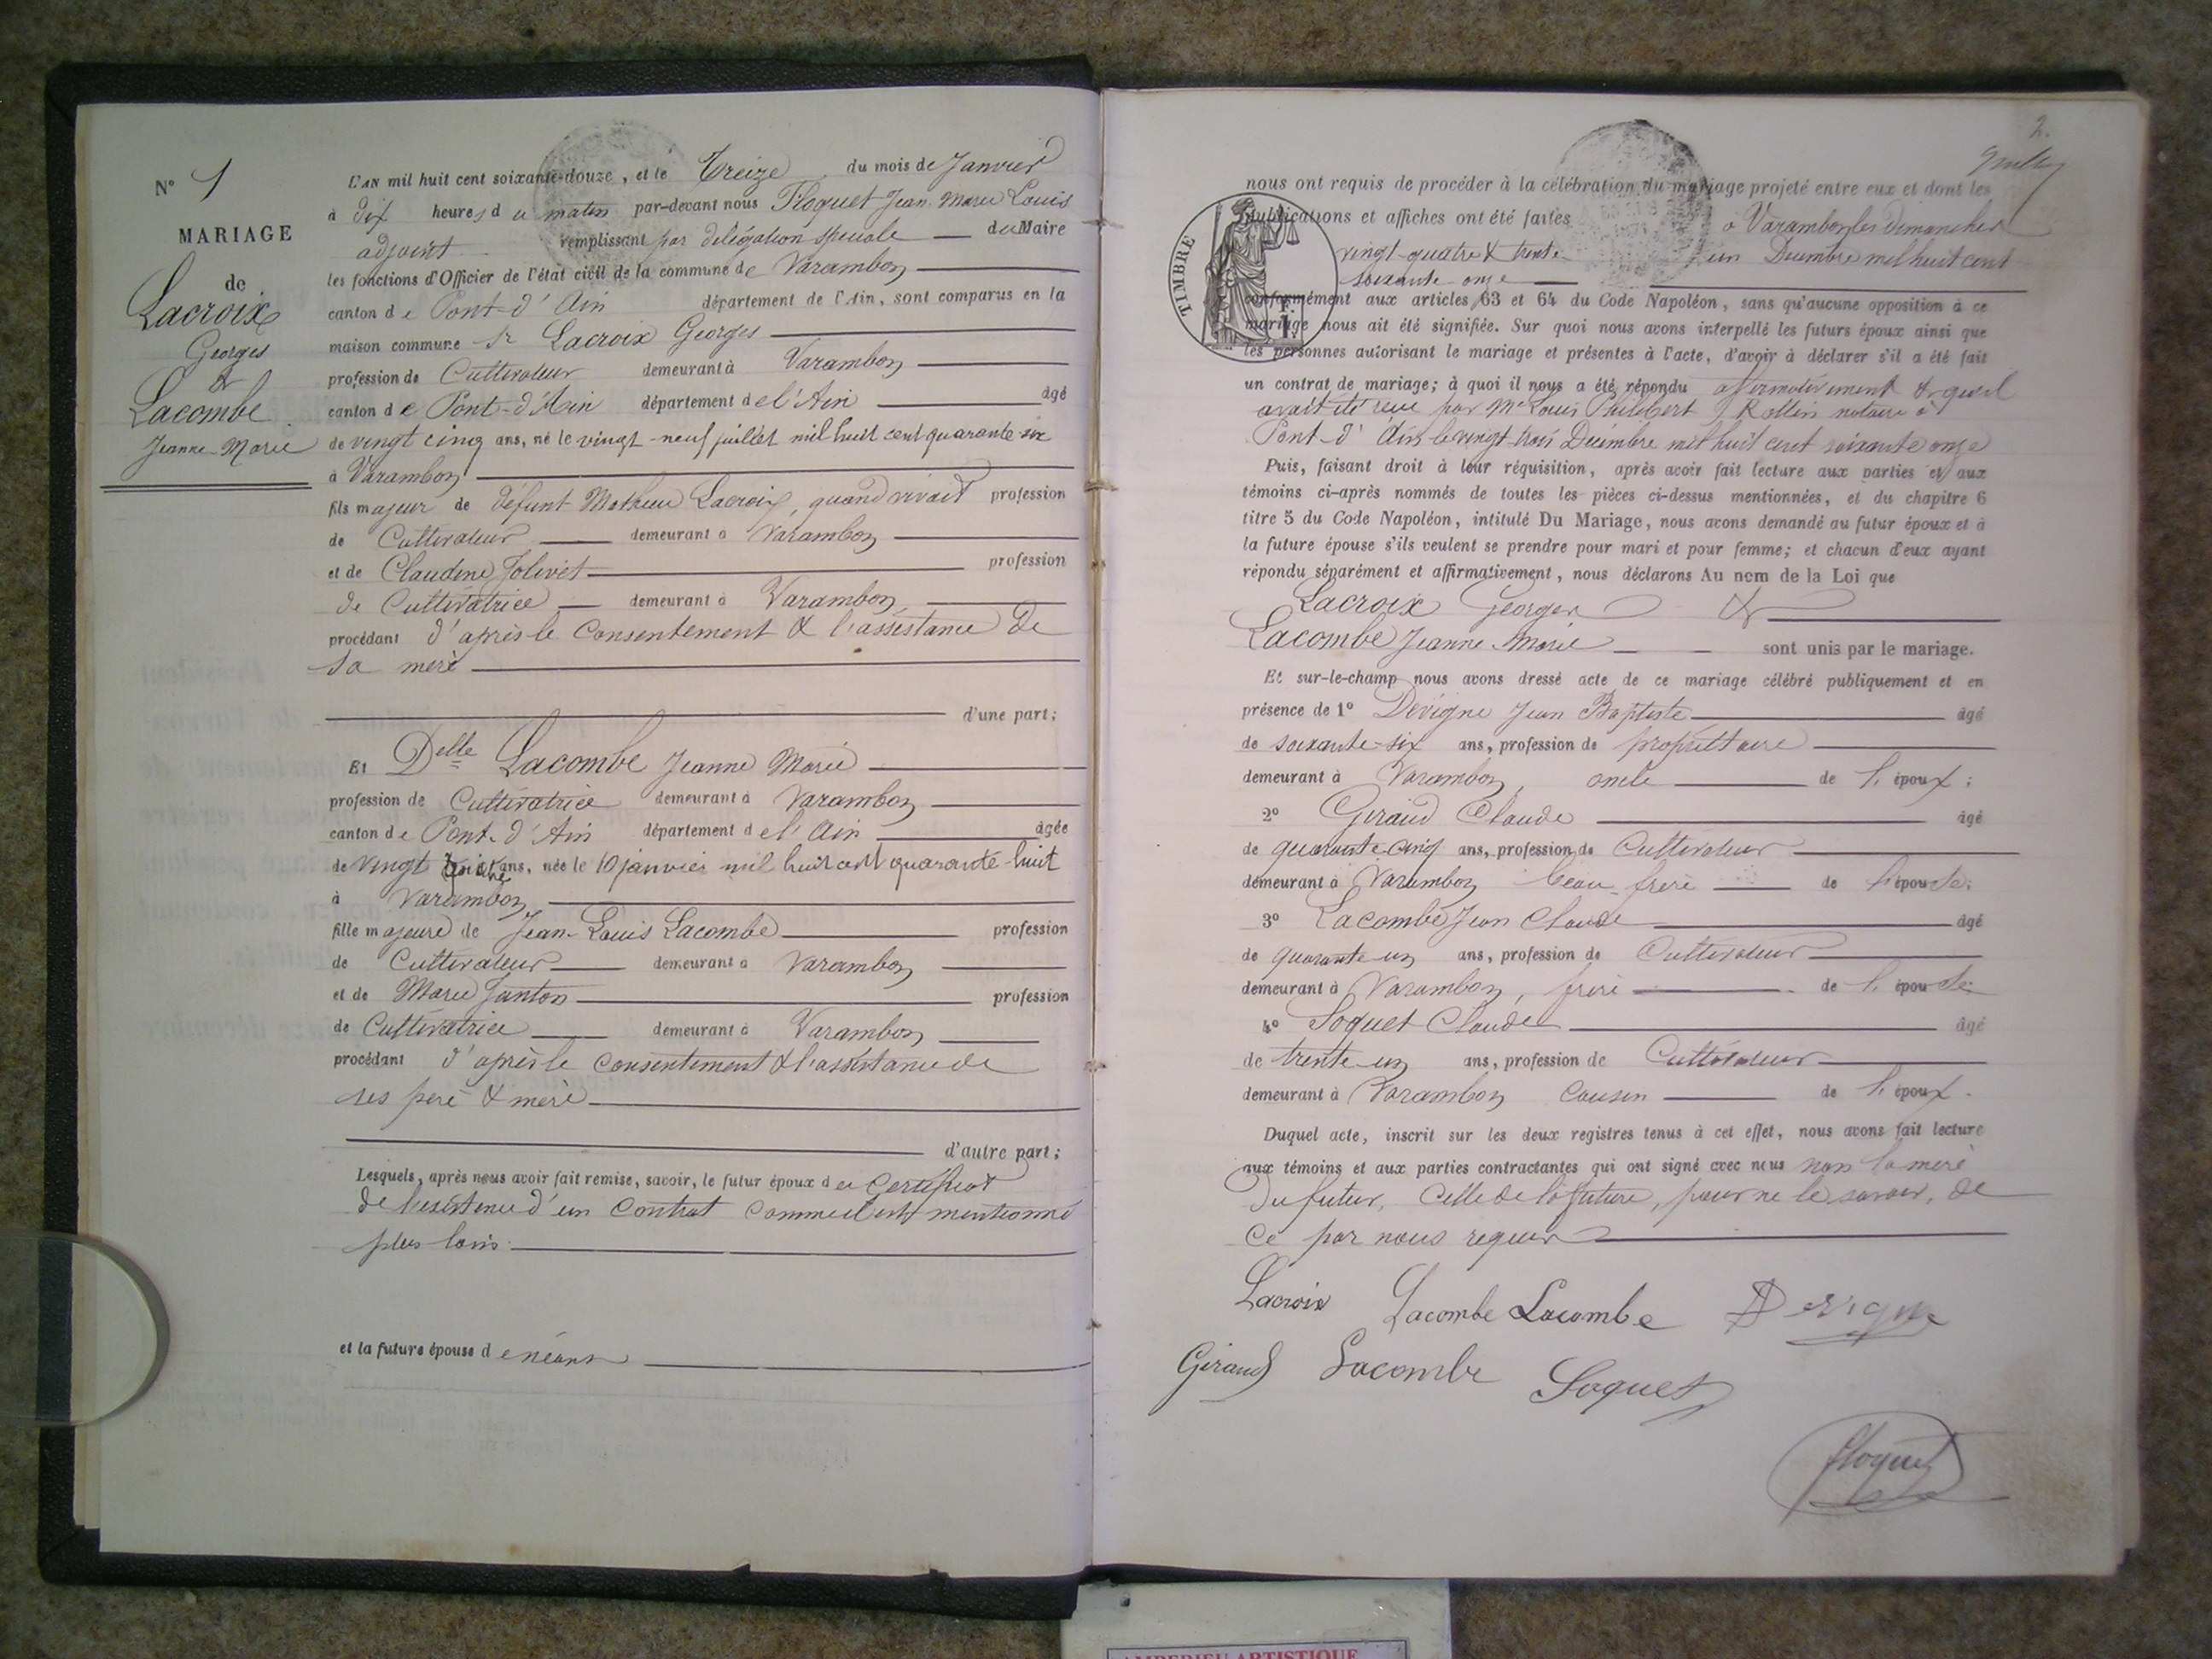 N° 1
MARIAGE
de
Lacroix
Georges
&
Lacombe
Jeanne-Marie
L'AN mil huit cent soixante-douze, et le Treize du mois de Janvier
à dix heures du matin par-devant nous Floquet Jean Marie Louis
adjoint remplissant par délégation spéciale du Maire
les fonctions d'Officier de l'état civil de la commune de Varambon
canton de Pont-d'Ain département de l'Ain, sont comparus en la
maison commune Sr Lacroix Georges
profession de Cultivateur demeurant à Varambon
canton de Pont-d'Ain département de l'Ain âgé
de vingt cinq ans, né le vingt-neuf juillet mil huit cent quarante-six
à Varambon
fils majeur de défunt Mathieu Lacroix, quand vivait profession
de Cultivateur demeurant à Varambon
et de Claudine Jolivet profession
de Cultivatrice demeurant à Varambon
procédant d'après le Consentement & l'assistance de
sa mère
d'une part;
Et Delle Lacombe Jeanne Marie
profession de Cultivatrice demeurant à Varambon
canton de Pont-d'Ain département de l'Ain âgée
de vingt ans, née le 10 janvier mil huit cent quarante-huit
à Varambon
fille majeure de Jean-Louis Lacombe profession
de Cultivateur demeurant à Varambon
et de Marie Janton profession
de Cultivatrice demeurant à Varambon
procédant d'après le Consentement & l'assistance de
ses père & mère
d'autre part;
Lesquels, après nous avoir fait remise, savoir, le futur époux du Certificat
de l'existence d'un Contrat comme il est mentionné
plus loin
et la future épouse de néant
2.
nous ont requis de procéder à la célébration du mariage projeté entre eux et dont les
publications et affiches ont été faites à Varambon les Dimanches
vingt-quatre & trente un Décembre mil huit cent
soixante onze
TIMBRE
conformément aux articles 63 et 64 du Code Napoléon, sans qu'aucune opposition à ce
mariage nous ait été signifiée. Sur quoi nous avons interpellé les futurs époux ainsi que
les personnes autorisant le mariage et présentes à l'acte, d'avoir à déclarer s'il a été fait
un contrat de mariage; à quoi il nous a été répondu affirmativement & qu'il
avait été reçu par Me Louis Philibert Rollin notaire à
Pont-d'Ain le vingt trois Décembre mil huit cent soixante onze
Puis, faisant droit à leur réquisition, après avoir fait lecture aux parties et aux
témoins ci-après nommés de toutes les pièces ci-dessus mentionnées, et du chapitre 6
titre 5 du Code Napoléon, intitulé Du Mariage, nous avons demandé au futur époux et à
la future épouse s'ils veulent se prendre pour mari et pour femme; et chacun d'eux ayant
répondu séparément et affirmativement, nous déclarons Au nom de la Loi que
Lacroix Georges &
Lacombe Jeanne-Marie sont unis par le mariage.
Et sur-le-champ nous avons dressé acte de ce mariage célébré publiquement et en
présence de 1° Dévigne Jean Baptiste âgé
de soixante-six ans, profession de propriétaire
demeurant à Varambon, oncle de l'époux;
2° Giraud Claude âgé
de quarante-cinq ans, profession de Cultivateur
demeurant à Varambon beau-frère de l'épouse;
3° Lacombe Jean Claude âgé
de quarante-un ans, profession de Cultivateur
demeurant à Varambon, frère de l'épouse;
4° Soquet Claude âgé
de trente-un ans, profession de Cultivateur
demeurant à Varambon Cousin de l'époux.
Duquel acte, inscrit sur les deux registres tenus à cet effet, nous avons fait lecture
aux témoins et aux parties contractantes qui ont signé avec nous non la mère
du futur, Celle de la future, pour ne le savoir, de
Ce par nous requis
Lacroix Lacombe Lacombe Devigne
Giraud Lacombe Soquet
Floquet
AMBERIEU ARTISTIQUE